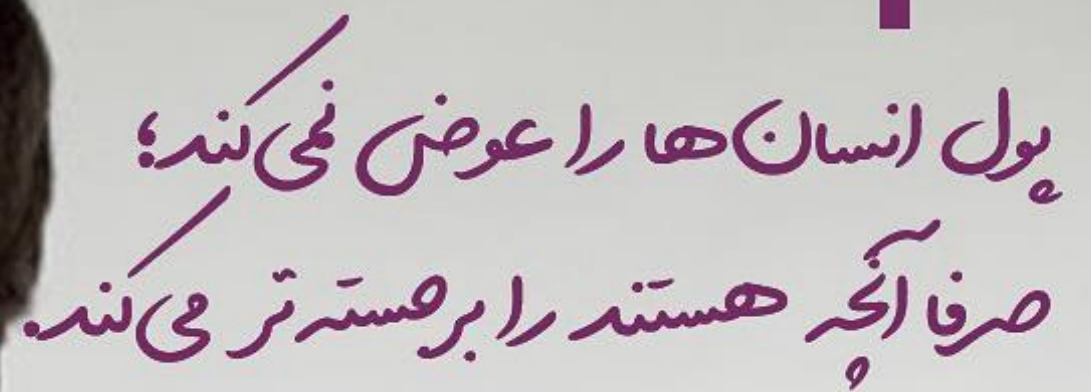 پول انسان‌ها را عوض نمی‌کند؛
صرفا آنچه هستند را برجسته‌تر می‌کند.